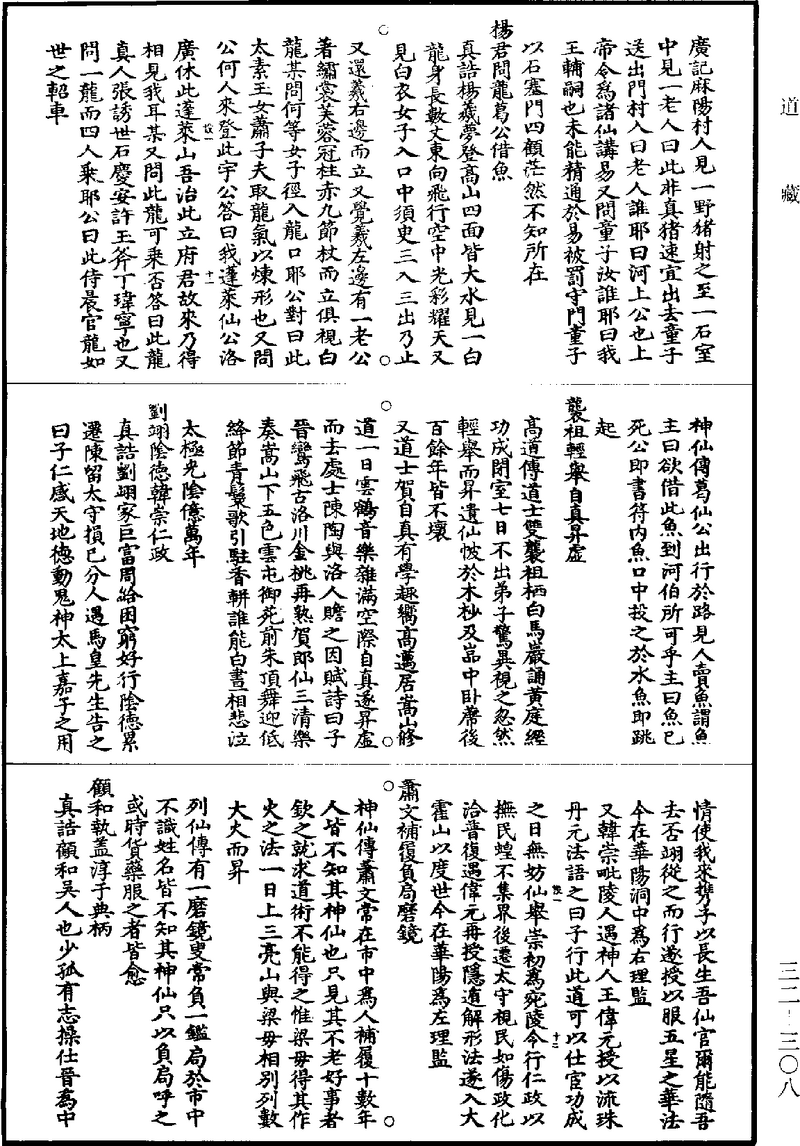 道藏
三二—三〇八
廣記麻陽村人見一野猪射之至一石室
中見一老人曰此非真猪速宜出去童子
送出門村人曰老人誰耶曰河上公也上
帝令爲諸仙講易又問童子汝誰耶曰我
王輔嗣也未能精通於易被罰守門童子
以石塞門四顧茫然不知所在
楊君問龍葛公借魚
真誥楊羲夢登高山四面皆大水見一白
龍身長數丈東向飛行空中光彩耀天又
見白衣女子入口中須史三入三出乃止
又還羲右邊而立又覺羲左邊有一老公
著繡裳芙蓉冠柱赤九節杖而立俱視白
龍某問何等女子徑入龍口耶公對曰此
太素王女蕭子夫取龍氣以煉形也又問
公何人來登此宇公答曰我蓬萊仙公洛
廣休此蓬萊山吾治此立府君故來乃得
相見我耳某又問此龍可乘否答曰此龍
真人張誘世石慶安許玉斧丁瑋寧也又
問一龍而四人乘耶公曰此侍晨官龍如
世之軺車
神仙傳葛仙公出行於路見人賣魚謂魚
主曰欲借此魚到河伯所可乎主曰魚已
死公即書符内魚口中投之於水魚即跳
起
襲祖輕舉自真昇虛
高道傳道士雙襲祖栖白馬巖誦黃庭經
功成閉室七日不出弟子驚異視之忽然
輕舉而昇遺仙帔於木杪及嵓中卧蓆後
百餘年皆不壞
又道士賀自真有學趣嚮高邁居嵩山修
道一日雲鶴音樂雜滿空際自真遂昇虛
而去處士陳陶與洛人贍之因賦詩曰子
晉鸞飛古洛川金桃再熟賀郎仙三清樂
奏嵩山下五色雲屯御苑前朱頂舞迎低
絳節青鬟歌引駐香軿誰能白晝相悲泣
太極光陰億萬年
劉翊陰德韓崇仁政
真誥劉翊家巨富周給困窮好行陰德累
遷陳留太守損已分人遇馬皇先生告之
曰子仁感天地德動鬼神太上嘉子之用
情使我來携子以長生吾仙官爾能隨吾
去否翊從之而行遂授以服五星之華法
今在華陽洞中爲右理監
又韓崇毗陵人遇神人王偉元授以流珠
丹元法語之曰子行此道可以仕宦功成
之日無妨仙舉崇初爲宛陵令行仁政以
撫民蝗不集界後遷太守視民如傷政化
洽普復遇偉元再授隱遁解形法遂入大
霍山以度世今在華陽爲左理監
蕭文補履負局磨鏡
神仙傳蕭文常在市中爲人補履十數年
人皆不知其神仙也只見其不老好事者
欽之就求道術不能得之惟梁母得其作
火之法一日上三亮山與梁母相別列數
大火而昇
列仙傳有一磨鏡叟常負一鑑局於市中
不識姓名皆不知其神仙只以負局呼之
或時貨藥服之者皆愈
顧和執盖淳于典柄
真誥顧和吳人也少孤有志操仕晉爲中